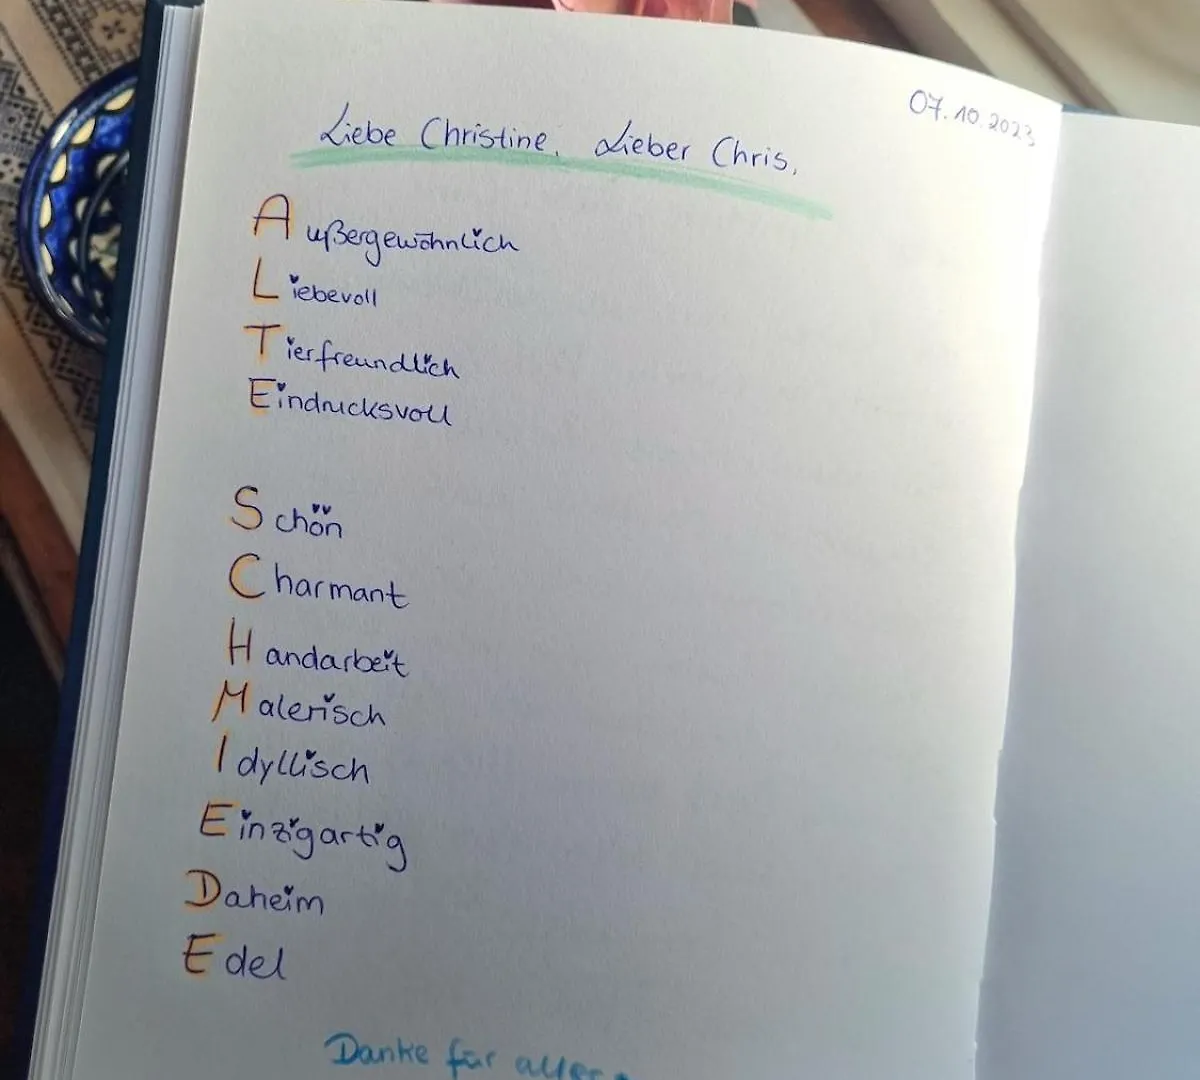 07.10.2023
Liebe Christine, Lieber Chris,
Außergewöhnlich
Liebevoll
Tierfreundlich
Eindrucksvoll
Schön
Charmant
Handarbeit
Malerisch
Idyllisch
Einzigartig
Daheim
Edel
Danke für